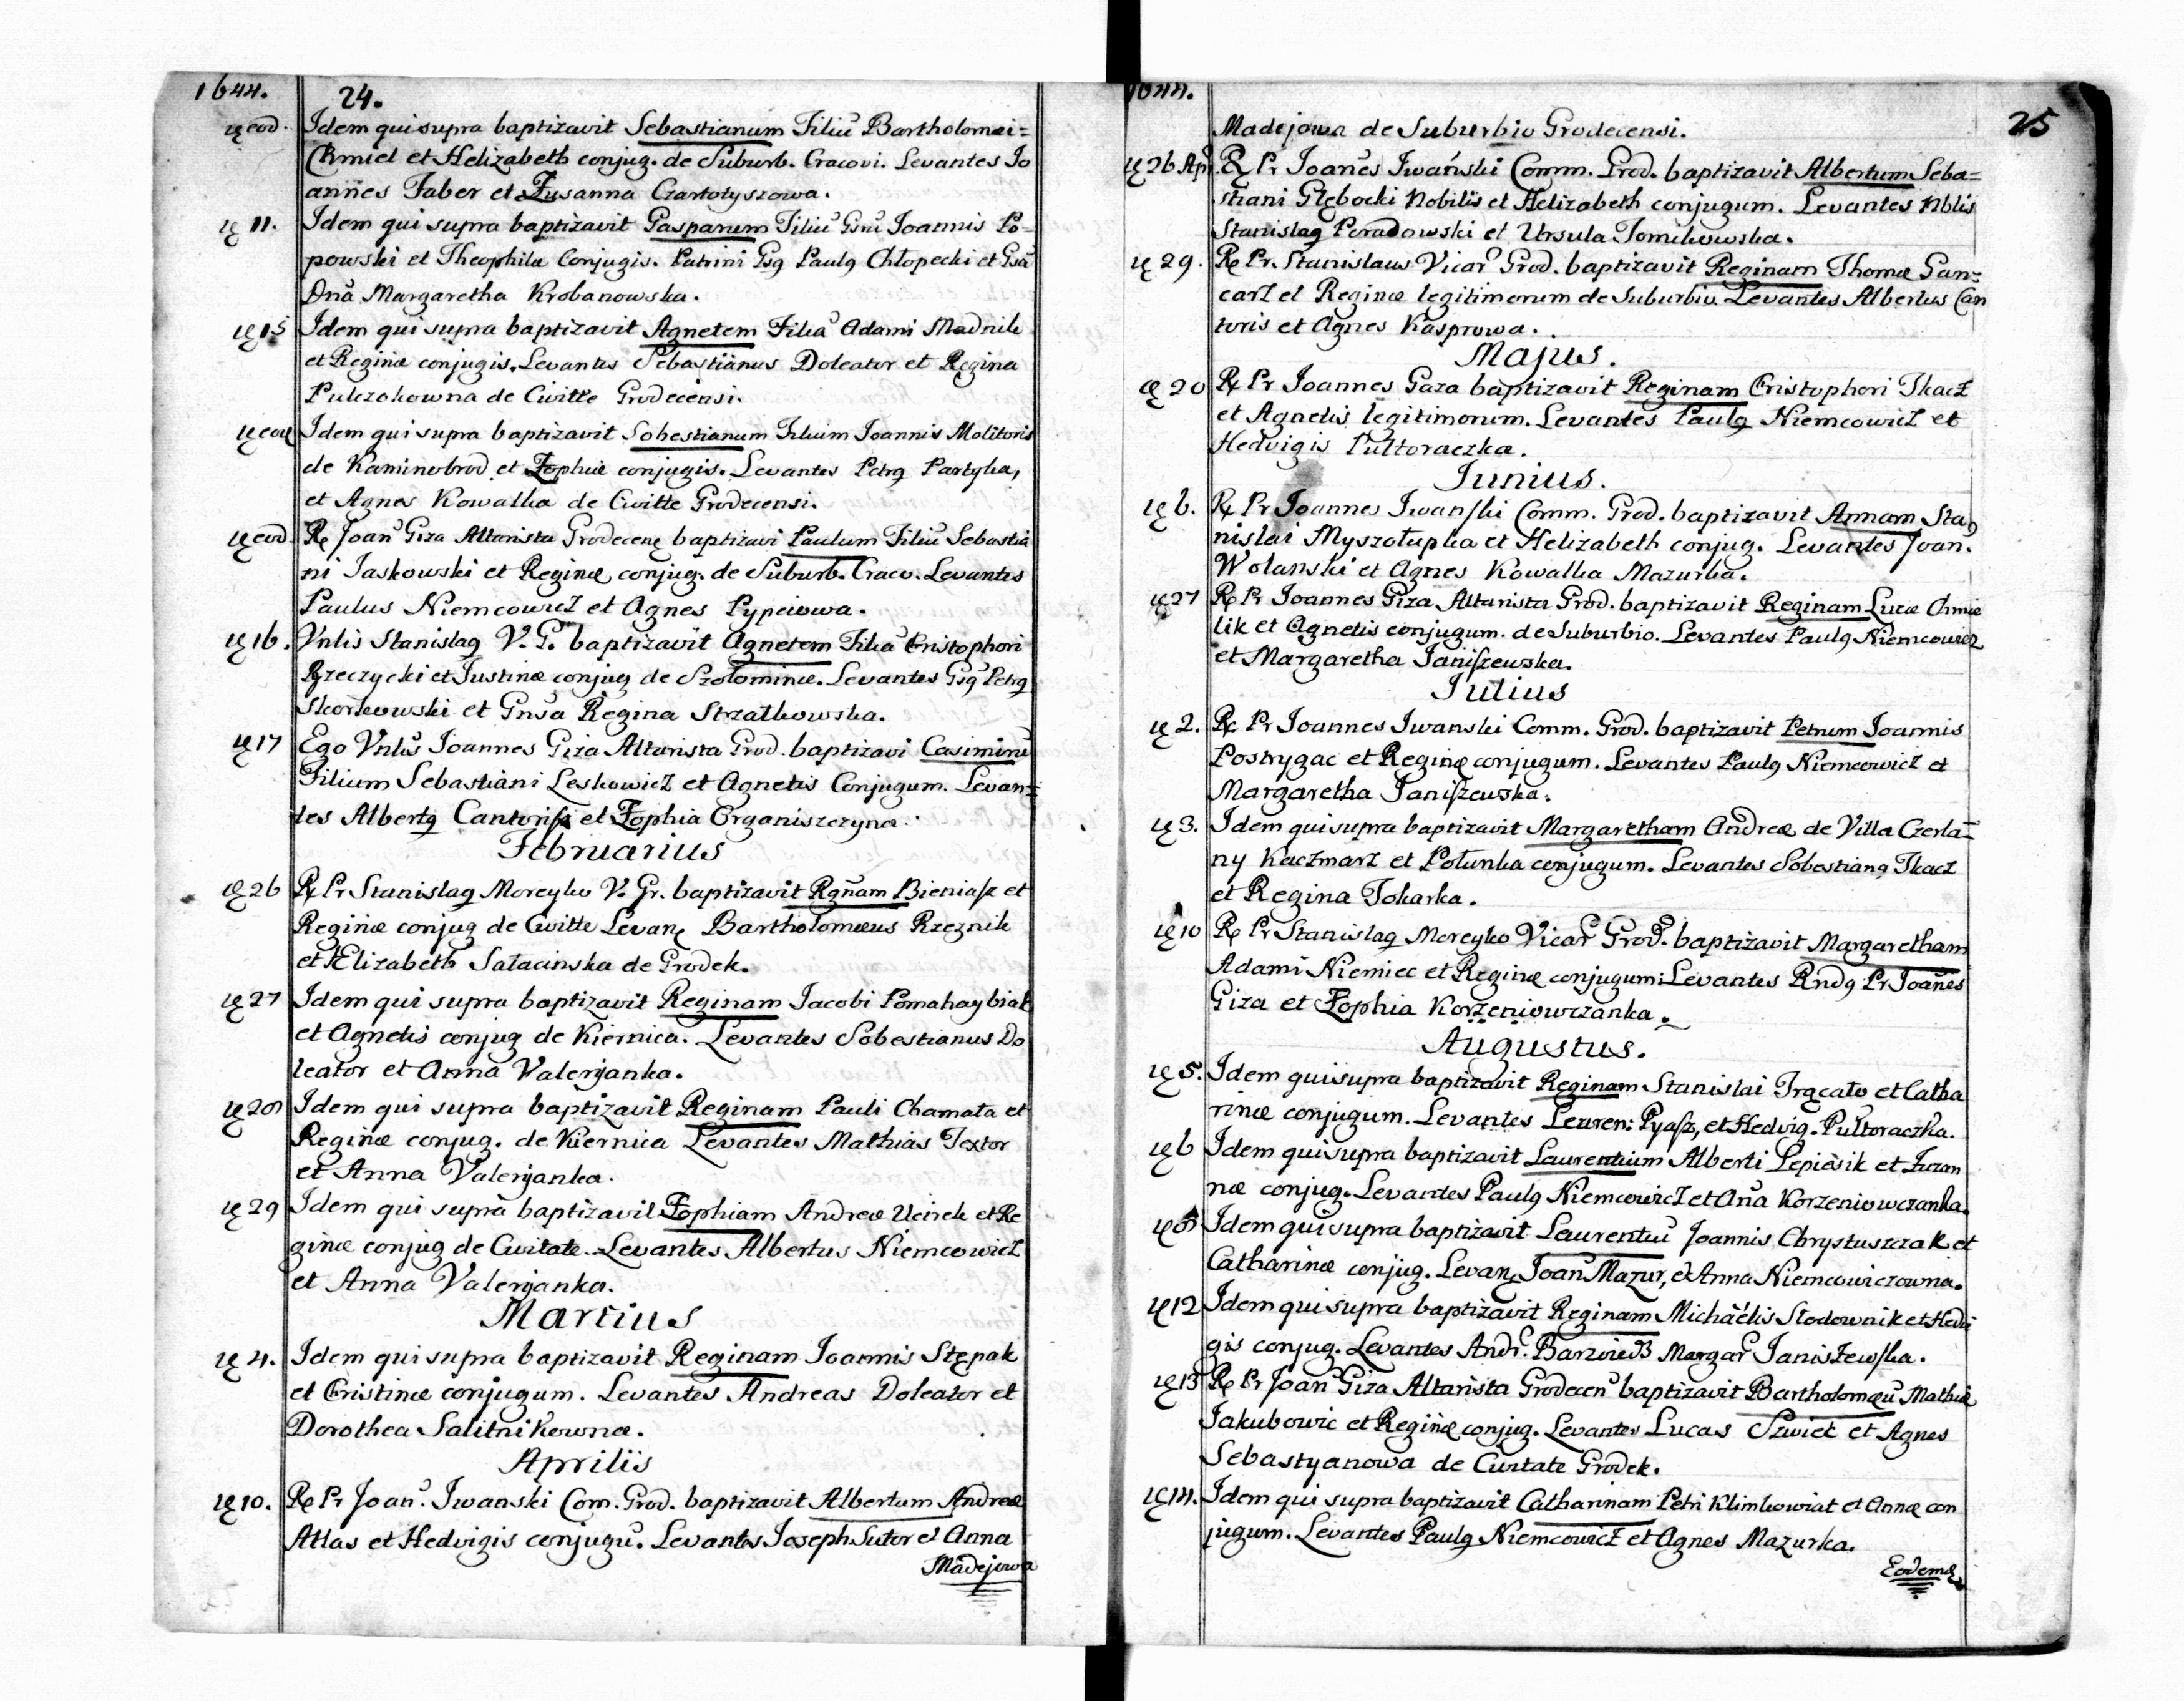 1644. 24.
eod. Idem qui supra baptizavit Sebastianum Filiū Bartholomei=
Chmiel et Helizabeth conjug. de Suburb. Cracovi. Levantes Jo
annes Faber et Zusanna Czartotyszowa.
11. Idem qui supra baptizavit Gasparum Filiū Gsni Joannis Po=
powski et Theophilæ Conjugis. Patrini Gsq Paulq Chłopecki et Gsa
Dnā Margaretha Krobanowska.
15 Idem qui supra baptizavit Agnetem Filiā Adami Madnik
et Reginæ conjugis. Levantes Sebastianus Doleator et Regina
Pulczokowna de Civitte Grodecensi.
eod Idem qui supra baptizavit Sobestianum Filium Joannis Molitoris
de Kaminobrod et Zophiæ conjugis. Levantes Petrq Partyka,
et Agnes Kowalka de Civitte Grodecensi.
eod. R Joan Giza Altarista Grodecenę baptizavi Paulum Filiū Sebastia
ni Jaskowski et Reginæ conjug. de Suburb. Craco. Levantes
Paulus Niemcowicz et Agnes Pypciowa.
16. Vnlis Stanislaq V. G. baptizavit Agnetem Filiā Cristophori
Rzeczycki et Justinæ conjug de Szołominæ. Levantes Gsq Petrq
Skorkowski et Gnsa Regina Strzałkowska.
17 Ego Vnlis Joannes Giza Altarista Grod. baptizavi Casimirū
Filium Sebastiani Leskowicz et Agnetis Conjugum. Levan=
tes Albertq Cantoris et Zophia Organiszczyna.
Februarius
26 R Pr Stanislaq Moreyko V. Gr. baptizavit Rgnam Bieniasz et
Reginæ conjug de Civitte Levanę Bartholomæus Rzeznik
et Elizabeth Sałacinska de Grodek.
27 Idem qui supra baptizavit Reginam Jacobi Pomahaybiał
et Agnetis conjug de Kiernica. Levantes Sobestianus Do
leator et Anna Valerjanka.
28 Idem qui supra baptizavit Reginam Pauli Chamata et
Reginæ conjug. de Kiernica Levantes Mathias Textor
et Anna Valerjanka.
29 Idem qui supra baptizavit Zophiam Andreæ Ucirek et Re
ginæ conjug de Civitate. Levantes Albertus Niemcowicz
et Anna Valerjanka.
Martius
4. Idem qui supra baptizavit Reginam Joannis Stępak
et Cristinæ conjugum. Levantes Andreas Doleator et
Dorothea Salitnikowna.
Aprilis
10. R Pr Joan. Iwanski Com. Grod. baptizavit Albertum Andreæ
Atlas et Hedvigis conjugū. Levantes Joseph Sutor et Anna
Madejowa
1644. 25
Madejowa de Suburbio Grodecensi.
26 Apr. R Pr Joanes Iwański Comm. Grod. baptizavit Albertum Seba=
stiani Głębocki Nobilis et Helizabeth conjugum. Levantes Nblis
Stanislaq Poradowski et Ursula Tomikowska.
29. R Pr. Stanislaus Vicar Grod. baptizavit Reginam Thomæ Gan=
carz et Reginæ legitimorum de Suburbio. Levantes Albertus Can
toris et Agnes Kasprowa.
Majus.
20 R Pr Joannes Gaza baptizavit Reginam Cristophori Tkacz
et Agnetis legitimorum. Levantes Paulq Niemcowicz et
Hedvigis Pułtoraczka.
Junius.
6. R Pr Joannes Iwanski Comm. Grod. baptizavit Annam Sta
nislai Myszołupka et Helizabeth conjug. Levantes Joan.
Wolanski et Agnes Kowalka Mazurka.
27 R Pr Joannes Giza Altarista Grod. baptizavit Reginam Lucæ Chmie
lik et Agnetis conjugum. de Suburbio. Levantes Paulq Niemcowicz
et Margaretha Janiszewska.
Julius
2. R Pr Joannes Iwanski Comm. Grod. baptizavit Petrum Joannis
Postrygac et Reginę conjugum. Levantes Paulq Niemcowicz et
Margaretha Janiszewska.
3. Idem qui supra baptizavit Margaretham Andreæ de Villa Czerla=
ny Kaczmarz et Połunka conjugum. Levantes Sobestianq Tkacz
et Regina Tokarka.
10 R Pr Stanislaq Moreyko Vicar Grod. baptizavit Margaretham
Adami Niemiec et Reginæ conjugum: Levantes Rndq Pr Joanes
Giza et Zophia Korzeniowczanka.
Augustus.
5. Idem qui supra baptizavit Reginam Stanislai Trącało et Catha
rinæ conjugum. Levantes Lauren: Pyasz, et Hedvig. Pułtoraczka.
6 Idem qui supra baptizavit Laurentium Alberti Lepiasik et Zuzan
næ conjug. Levantes Paulq Niemcowicz et Ana Korzeniowczanka.
8 Idem qui supra baptizavit Laurentiū Joannis Chrystuszczak et
Catharinæ conjug. Levanę Joan Mazur, et Anna Niemcowiczowna.
12 Idem qui supra baptizavit Reginam Michaëlis Stodownik et Hedvi
gis conjug. Levantes Andr. Barwicz Margar Janiszewska.
13 R Pr Joan Giza Altarista Grodecen baptizavit Bartholomæū Mathiæ
Jakubowic et Reginæ conjug. Levantes Lucas Szwiec et Agnes
Sebastyanowa de Civitate Grodek.
14. Idem qui supra baptizavit Catharinam Petri Klimkowiat et Annæ con
jugum. Levantes Paulq Niemcowicz et Agnes Mazurka.
Eodem